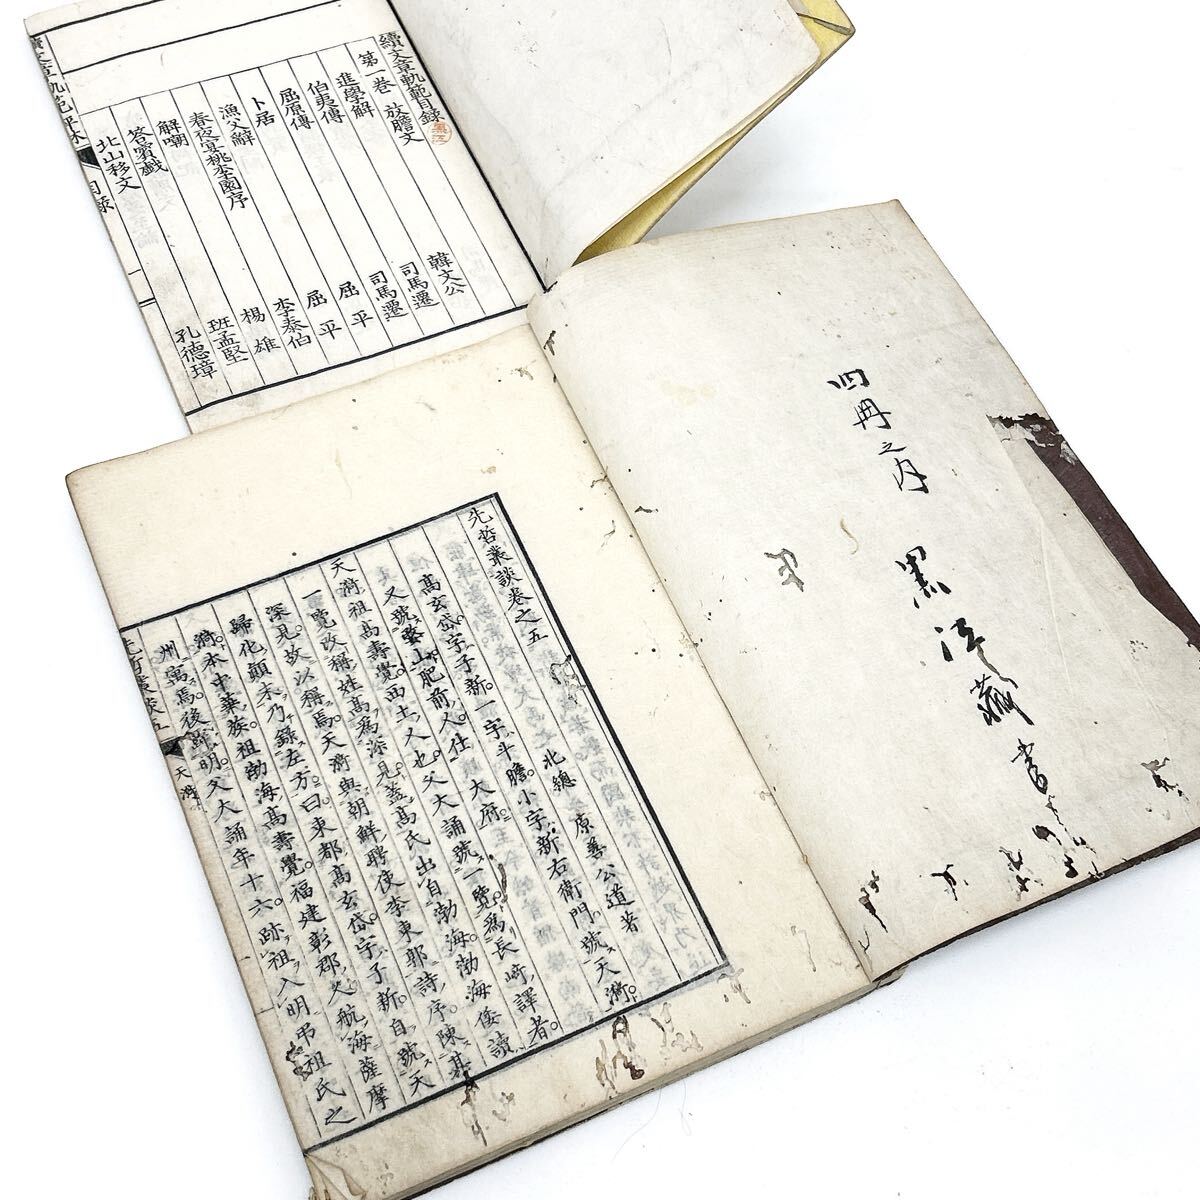 續文章軌範目錄
第一卷 放膽文
進學解 韓文公
伯夷傳 司馬遷
屈原傳 司馬遷
卜居 屈平
漁父辭 屈平
春夜宴桃李園序 李泰伯
解嘲 楊雄
答賓戲 班孟堅
北山移文 孔德璋
續文章軌範評林 目錄 一
四冊之内
先哲叢談卷之五
北總 原善公道著
高玄岱。字子新。一字斗膽。小字新右衛門。號天漪。
又號婺山。肥前人。仕大府。
天漪祖高壽覺。西土人也。父大誦。號一覽。爲長崎譯者。
一覽改稱姓高。爲深見。蓋高氏出自渤海。渤海倭讀
深見。故以稱焉。天漪與朝鮮聘使李東郭詩序。陳其
歸化顛末。乃錄左方。曰。東都高玄岱。字子新。自號天
漪。本中華族。祖渤海高壽覺。福建彰郡人。航海薩摩
州寓焉。後歸明。父大誦年十六。跡祖入明。弔祖氏之
先哲叢談五 天漪 一